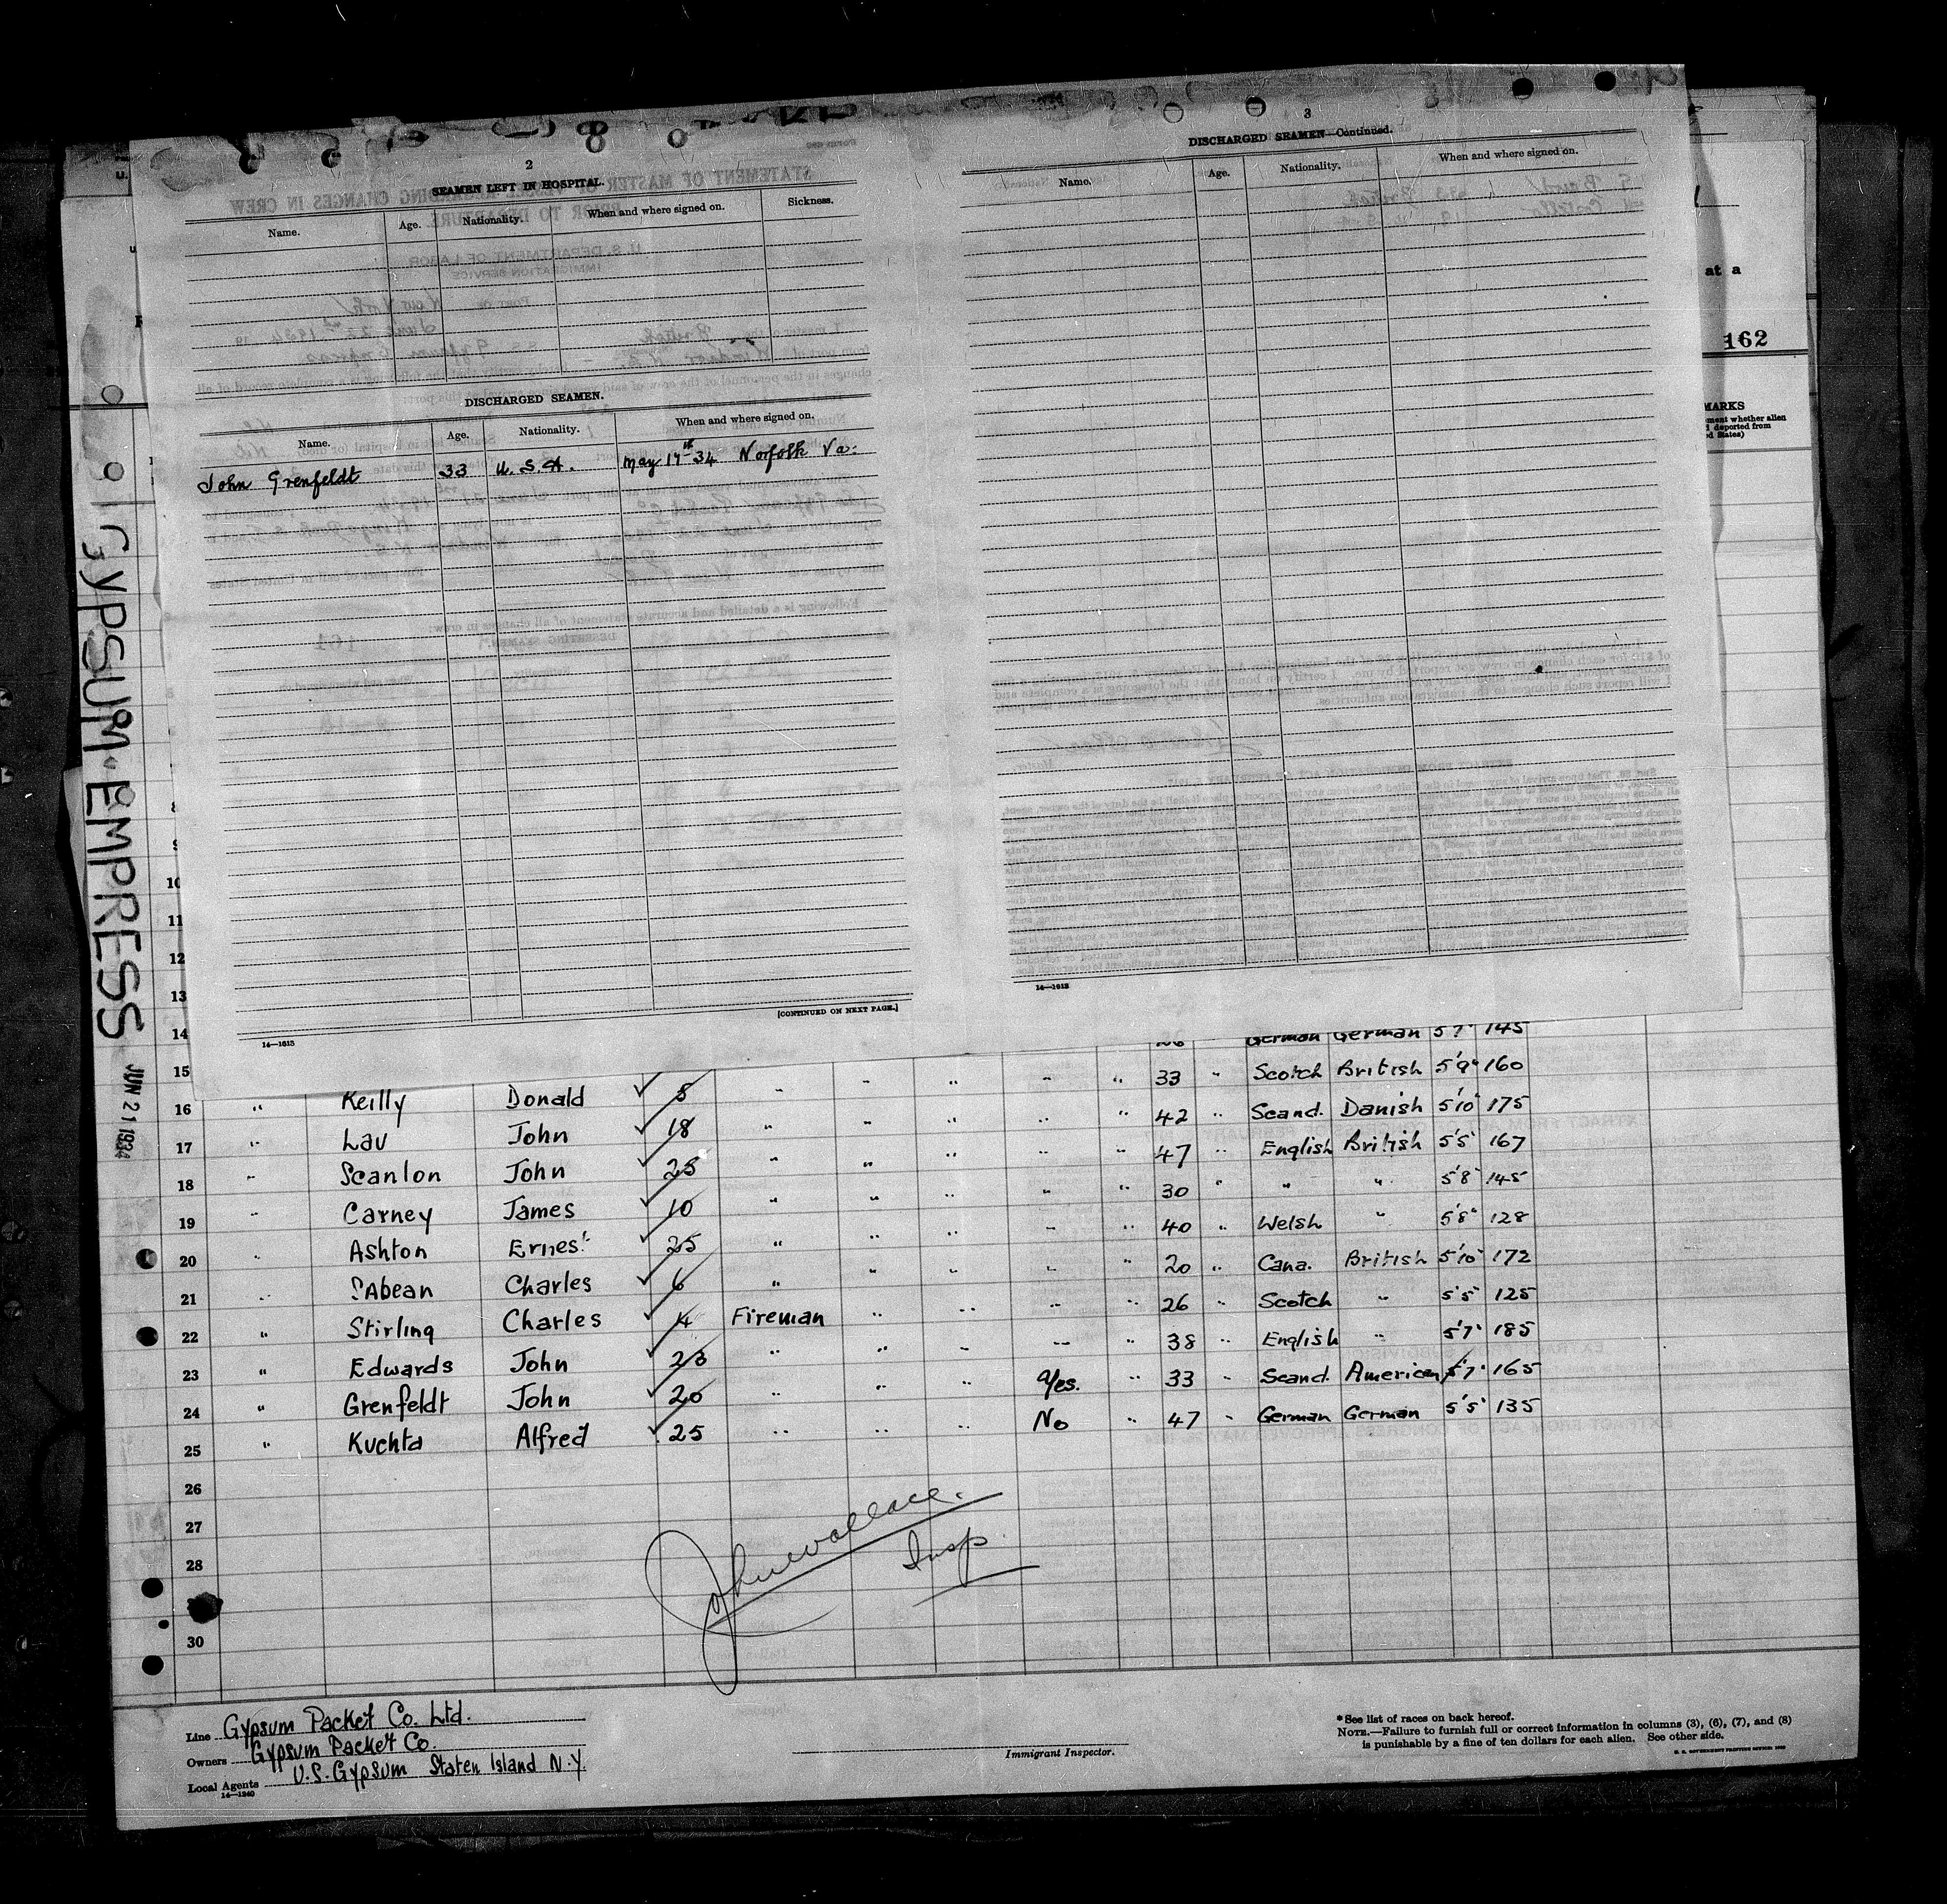 2
SEAMEN LEFT IN HOSPITAL.
Name. Age. Nationality. When and where signed on. Sickness.
DISCHARGED SEAMEN.
Name. Age. Nationality. When and where signed on.
John Grenfeldt 33 U.S.A. May 17th 34 Norfolk Va.
[CONTINUED ON NEXT PAGE.]
14—1613
3
DISCHARGED SEAMEN—Continued.
Name. Age. Nationality. When and where signed on.
14—1613
at a
162
MARKS
ment whether alien
deported from
ed States)
GYPSUM EMPRESS
JUN 21 1934
8
9
10
11
12
13
14 German German 5'7" 145
15 33 " Scotch British 5'9" 160
16 " Keilly Donald ✓ 5 " " " " " 42 " Scand. Danish 5'10" 175
17 " Lau John ✓ 18 " " " " " 47 " English British 5'5" 167
18 " Scanlon John ✓ 25 " " " " " 30 " " " 5'8" 145
19 " Carney James ✓ 10 " " " " " 40 " Welsh " 5'8" 128
20 " Ashton Ernest ✓ 25 " " " " " 20 " Cana. British 5'10" 172
21 " SAbean Charles ✓ 6 " " " " " 26 " Scotch " 5'5" 125
22 " Stirling Charles ✓ 4 Fireman " " " " 38 " English " 5'7" 185
23 " Edwards John ✓ 23 " " " Yes. " 33 " Scand. American 5'7" 165
24 " Grenfeldt John ✓ 20 " " " No " 47 " German German 5'5" 135
25 " Kuchta Alfred ✓ 25 " " "
26
27
28
30
John Wallace.
Insp.
Line Gypsum Packet Co. Ltd.
Owners Gypsum Packet Co.
Local Agents U.S. Gypsum Staten Island N.Y.
14—1240
Immigrant Inspector.
*See list of races on back hereof.
NOTE.—Failure to furnish full or correct information in columns (3), (6), (7), and (8)
is punishable by a fine of ten dollars for each alien. See other side.